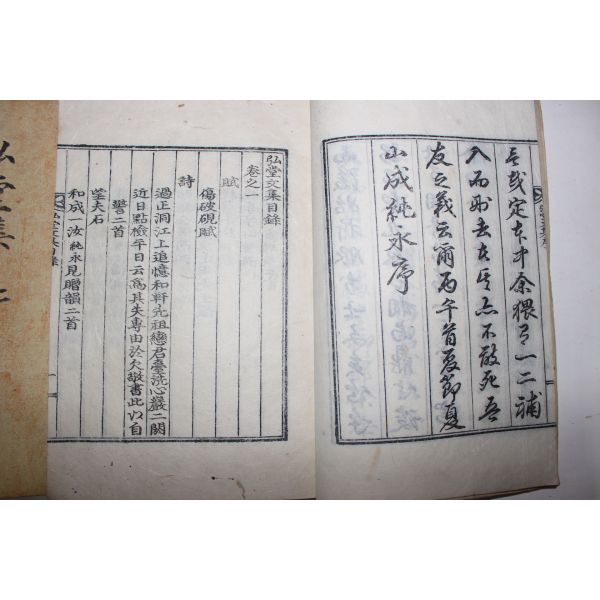 哉定本中余猥有一二補
入而刪去者是亦不敢死吾
友之義云爾丙午首夏節夏
山成純永序
弘堂文集目錄
卷之一
賦
傷破硯賦
詩
過正洞江上追憶和軒先祖戀君臺洗心巖二闋
近日點檢平日云爲其失專由於欠敬書此以自
警二首
望大石
和成一汝純永見贈韻二首
弘堂文集目錄
弘堂集